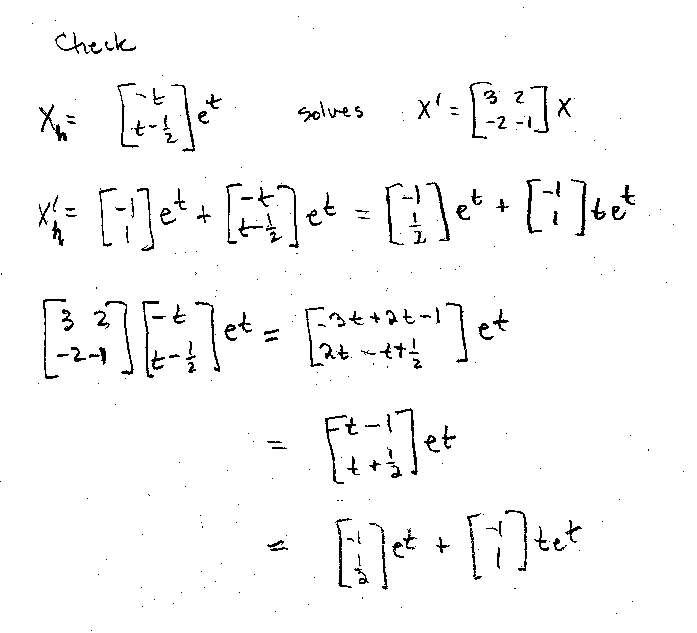 Check
X_h = [-t; t-1/2] e^t solves X' = [3 2; -2 -1] X
X_h' = [-1; 1] e^t + [-t; t-1/2] e^t = [-1; 1/2] e^t + [-1; 1] te^t
[3 2; -2 -1] [-t; t-1/2] e^t = [-3t+2t-1; 2t-t+1/2] e^t
= [-t-1; t+1/2] e^t
= [-1; 1/2] e^t + [-1; 1] te^t